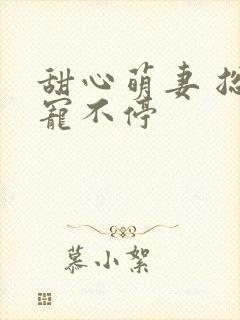 甜心萌妻
宠不停
慕小絮